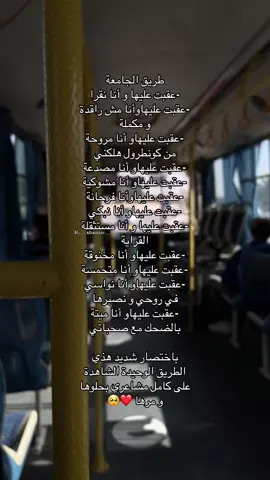 طريق الجامعة
-عقبت عليها و أنا نقرا
-عقبت عليهاوأنا مش راقدة
و مكملة
-عقبت عليهاو أنا مروحة
من كونطرول هلكني
-عقبت عليهاو أنا مصدعة
-عقبت عليهاو أنا مشوكية
-عقبت عليهاوأنا فرحانة
-عقبت عليهاو أنا نبكي
-عقبت عليها و أنا مستثقلة
القراية
-عقبت عليهاو أنا مخنوقة
-عقبت عليهاو أنا متحمسة
-عقبت عليهاو أنا نواسي
في روحي و نصبرها
-عقبت عليهاو أنا ميتة
بالضحك مع صحباتي
باختصار شديد هذي
الطريق الوحيدة الشاهدة
على كامل مشاعري بحلوها
و مرها ❤️🥺